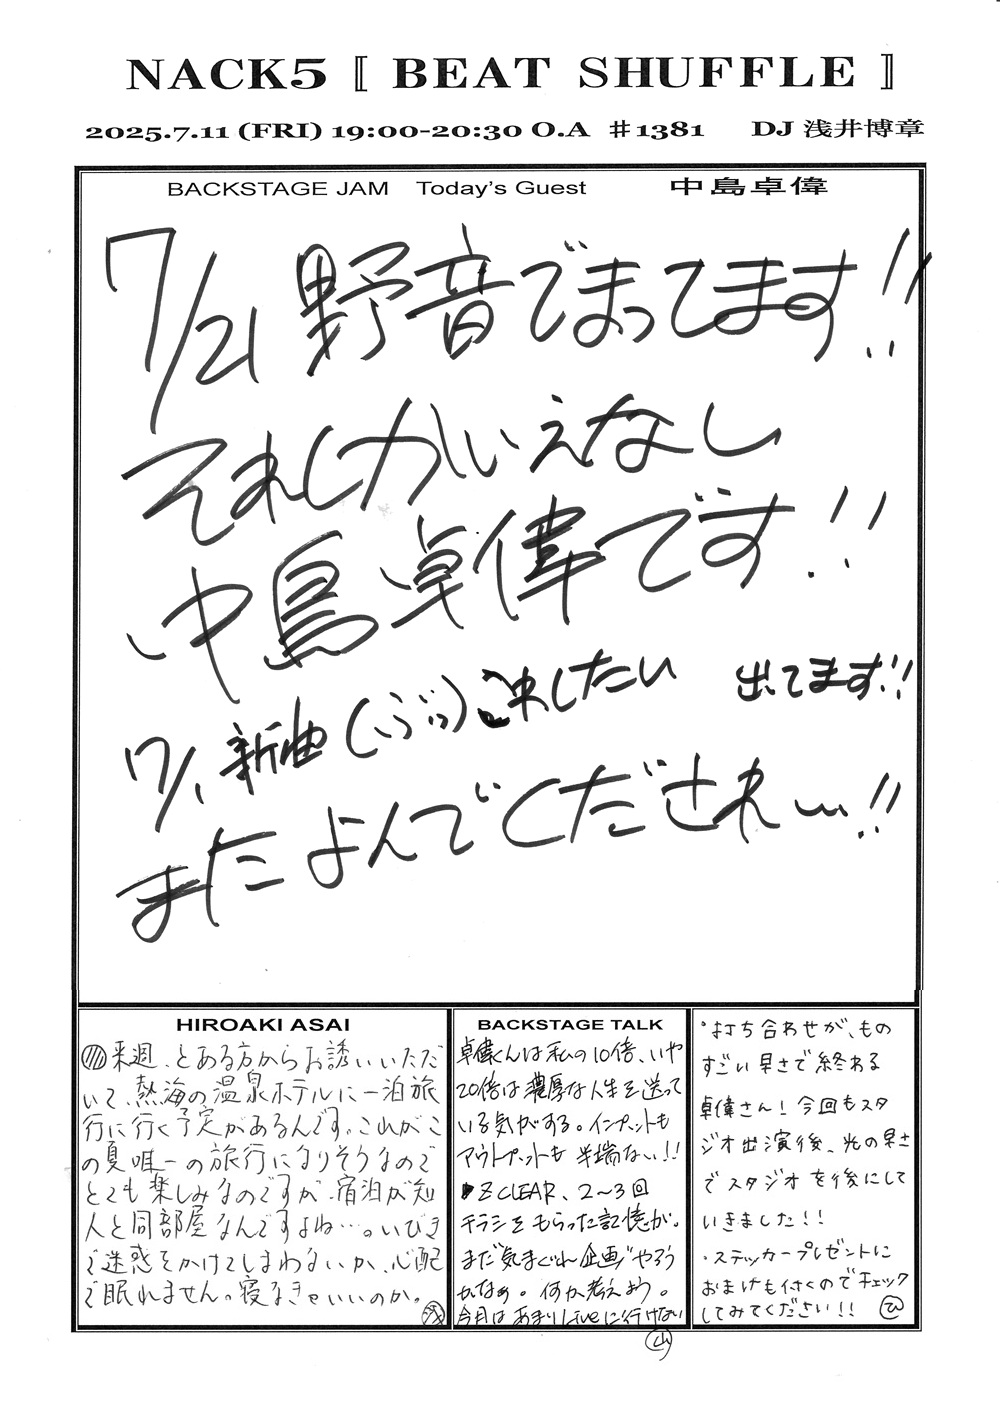 NACK5 〚 BEAT SHUFFLE 〛
2025.7.11 (FRI) 19:00-20:30 O.A ♯1381 DJ 浅井博章
BACKSTAGE JAM Today's Guest 中島卓偉
7/21 野音でまってます!!
それしかいえなし
中島卓偉です!!
7/1 新曲 (ぶっ)決したい 出てます!!
またよんでくだされ〜!!
HIROAKI ASAI
来週、とある方からお誘いいただ
いて、熱海の温泉ホテルに一泊旅
行に行く予定があるんです。これがこ
の夏唯一の旅行になりそうなので
とても楽しみなのですが、宿泊が知
人と同部屋なんですよね…。いびき
で迷惑をかけてしまわないか、心配
で眠れません。寝なきゃいいのか。
浅
BACKSTAGE TALK
卓偉くんは私の10倍、いや
20倍は濃厚な人生を送って
いる気がする。インプットも
アウトプットも半端ない!!
Z CLEAR、2〜3回
チラシをもらった記憶が。
まだ"気まぐれ企画"やろう
かなぁ。何か考えよう。
今月はあまりLiveに行けない
山
・打ち合わせが、もの
すごい早さで終わる
卓偉さん!今回もスタ
ジオ出演後、光の早さ
でスタジオを後にして
いきました!!
・ステッカープレゼントに
おまけも付くのでチェック
してみてください!! ひ